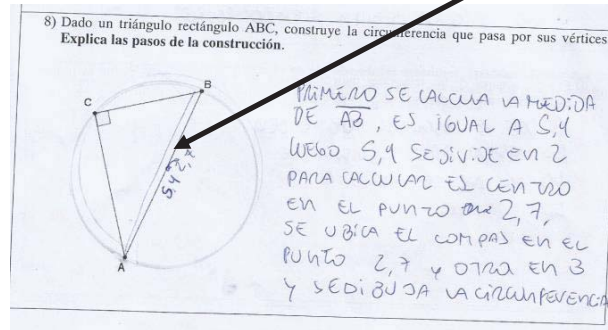 8) Dado un triángulo rectángulo ABC, construye la circunferencia que pasa por sus vértices
Explica las pasos de la construcción.
B
C
A
5,4
2,7
PRIMERO SE CALCULA LA MEDIDA
DE AB, ES IGUAL A 5,4
LUEGO 5,4 SE DIVIDE EN 2
PARA CALCULAR EL CENTRO
EN EL PUNTO 2,7,
SE UBICA EL COMPAS EN EL
PUNTO 2,7 y OTRA EN B
Y SE DIBUJA LA CIRCUNFERENCIA